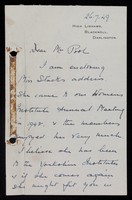 26.7.49
High Lineard,
Blackwell,
Darlington
Dear Mr Pool
I am enclosing
Miss Stock's address
She came to our Womens
Institute Annual Meeting
in 1948, & the members
enjoyed her very much.
I believe she has been
to the Yorkshire Institutes
& if she comes again
she might fit you in